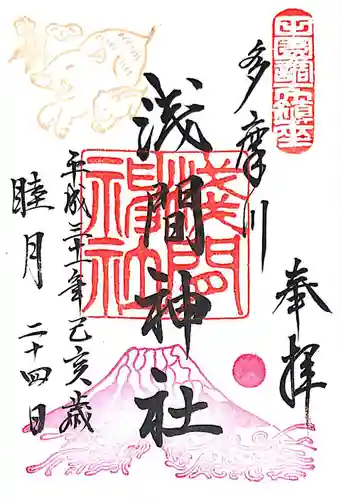 奉拝
多摩川
浅間神社
平成三十一年己亥歳
睦月 二十四日
浅間神社